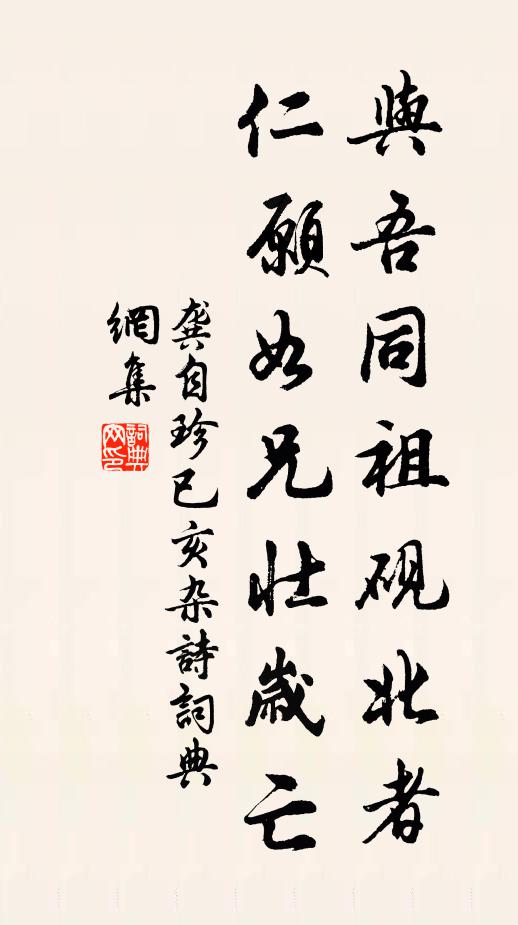 與吾同祖硯北者
仁願如兄壯歲亡
龔自珍己亥杂詩詞典
網集
詞典
网印